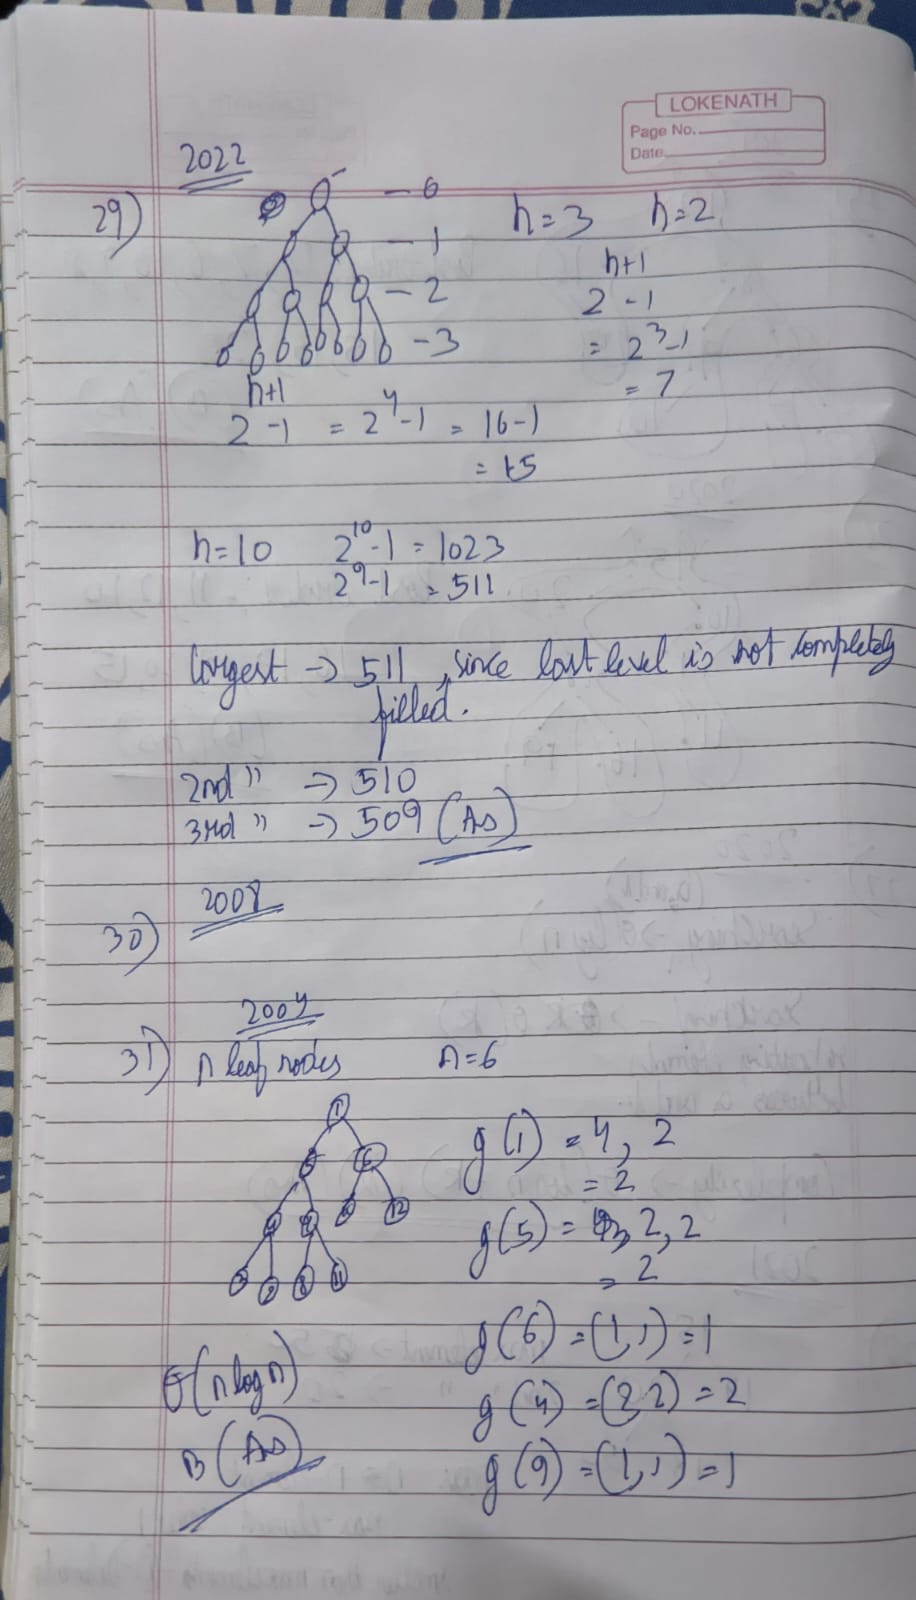 LOKENATH
Page No.
Date
2022
29)
- 0
h=3 h=2
- 1
- 2
- 3
2^(h+1) - 1
= 2^3 - 1
= 7
2^(h+1) - 1 = 2^4 - 1 = 16-1
= 15
h=10 2^10 - 1 = 1023
2^9 - 1 = 511
largest → 511, since last level is not completely
filled.
2nd " → 510
3rd " → 509 (As)
2008
30)
2004
31) n leaf nodes n=6
1
12
11
g(1) = 4, 2
= 2
g(5) = 2, 2
= 2
g(6) = (1,1) = 1
g(4) = (2,2) = 2
g(9) = (1,1) = 1
θ(n log n)
B (As)